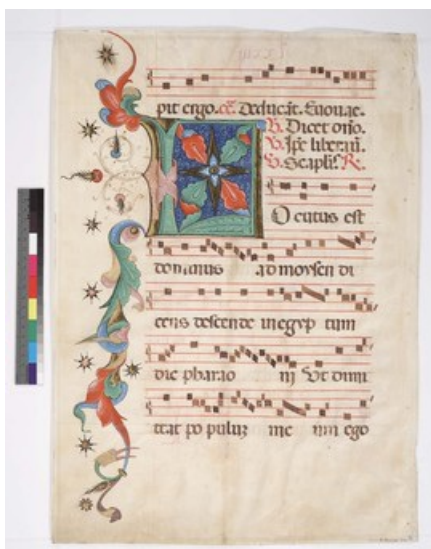 pit ergo. Deducāt. Euouae.
V. Dicet dn̄o.
V. Ip̄e liberaū.
V. Scaplis̄ R.
LOcutus est
dominus ad moysen di
cens descende in egyp tum
dic pharao ni Ut dimi
ttat po puluʒ me um ego